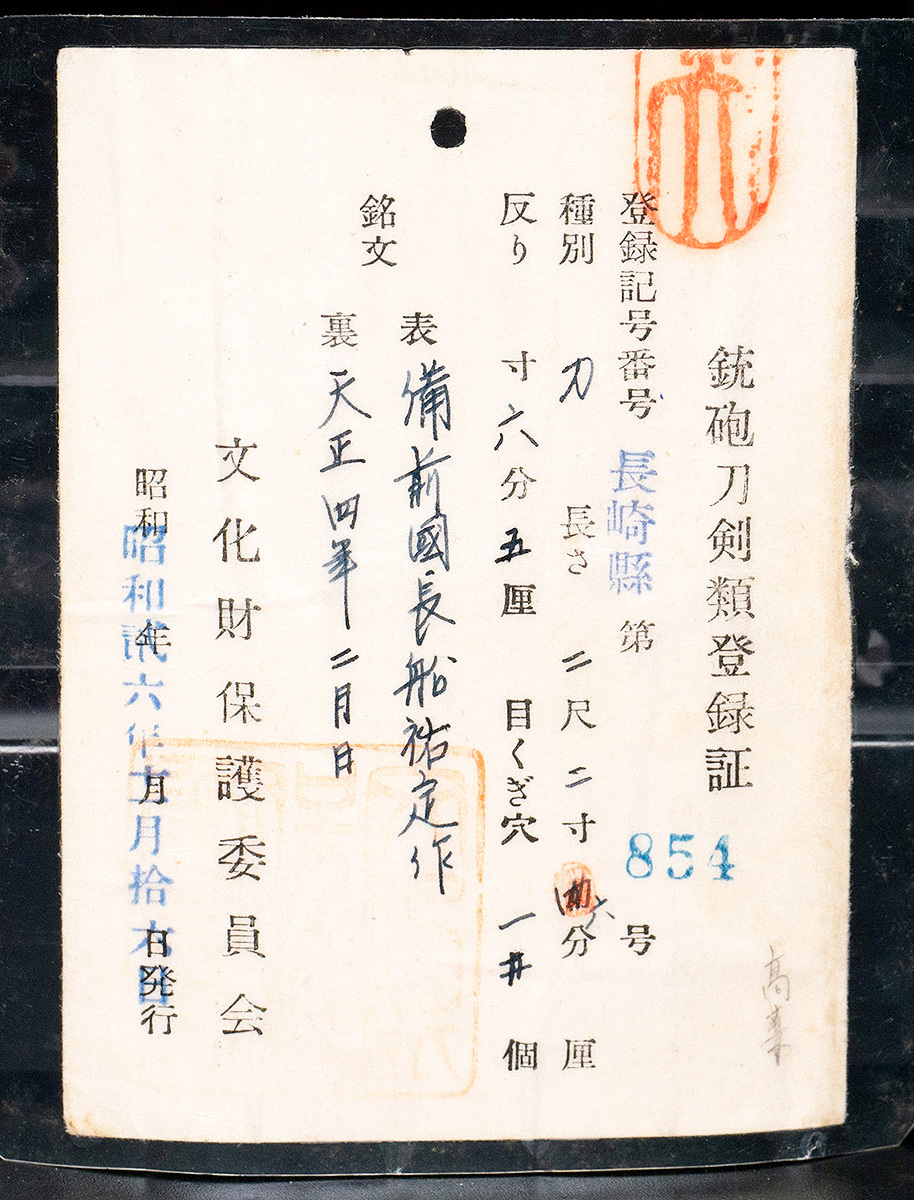 銃砲刀剣類登録証
登録記号番号 長崎縣 第 854 号
種別 刀 長さ 二尺 二寸 六分 厘
反り 寸 六分 五厘 目くぎ穴 一 個
銘文
表 備前國長船祐定作
裏 天正四年二月日
文化財保護委員会
昭和 年 月 日発行
昭和貳六年 月拾六日